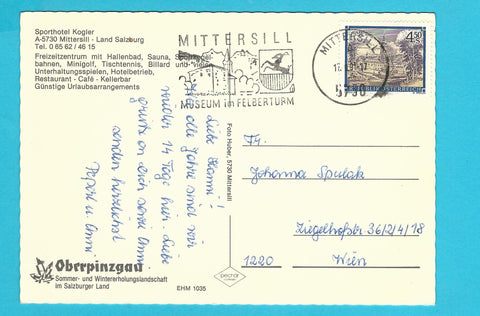 Sporthotel Kogler
A-5730 Mittersill - Land Salzburg
Tel. 0 65 62 / 46 15
Freizeitzentrum mit Hallenbad, Sauna,
bahnen, Minigolf, Tischtennis, Billard und
Unterhaltungsspielen, Hotelbetrieb,
Restaurant - Café - Kellerbar
Günstige Urlaubsarrangements
MITTERSILL
MUSEUM im FELBERTURM
MITTERSILL
5730
4.50
Liebe Hanni!
Wie alle Jahre sind wir
wieder 14 Tage hier. Liebe
Grüße an
senden herzlichst
Pepi u. Anni
Foto Huber, 5730 Mittersill
Johanna
Ziegelhofstr 36/2/4/18
1220 Wien
Oberpinzgau
Sommer- und Wintererholungslandschaft
im Salzburger Land
EHM 1035